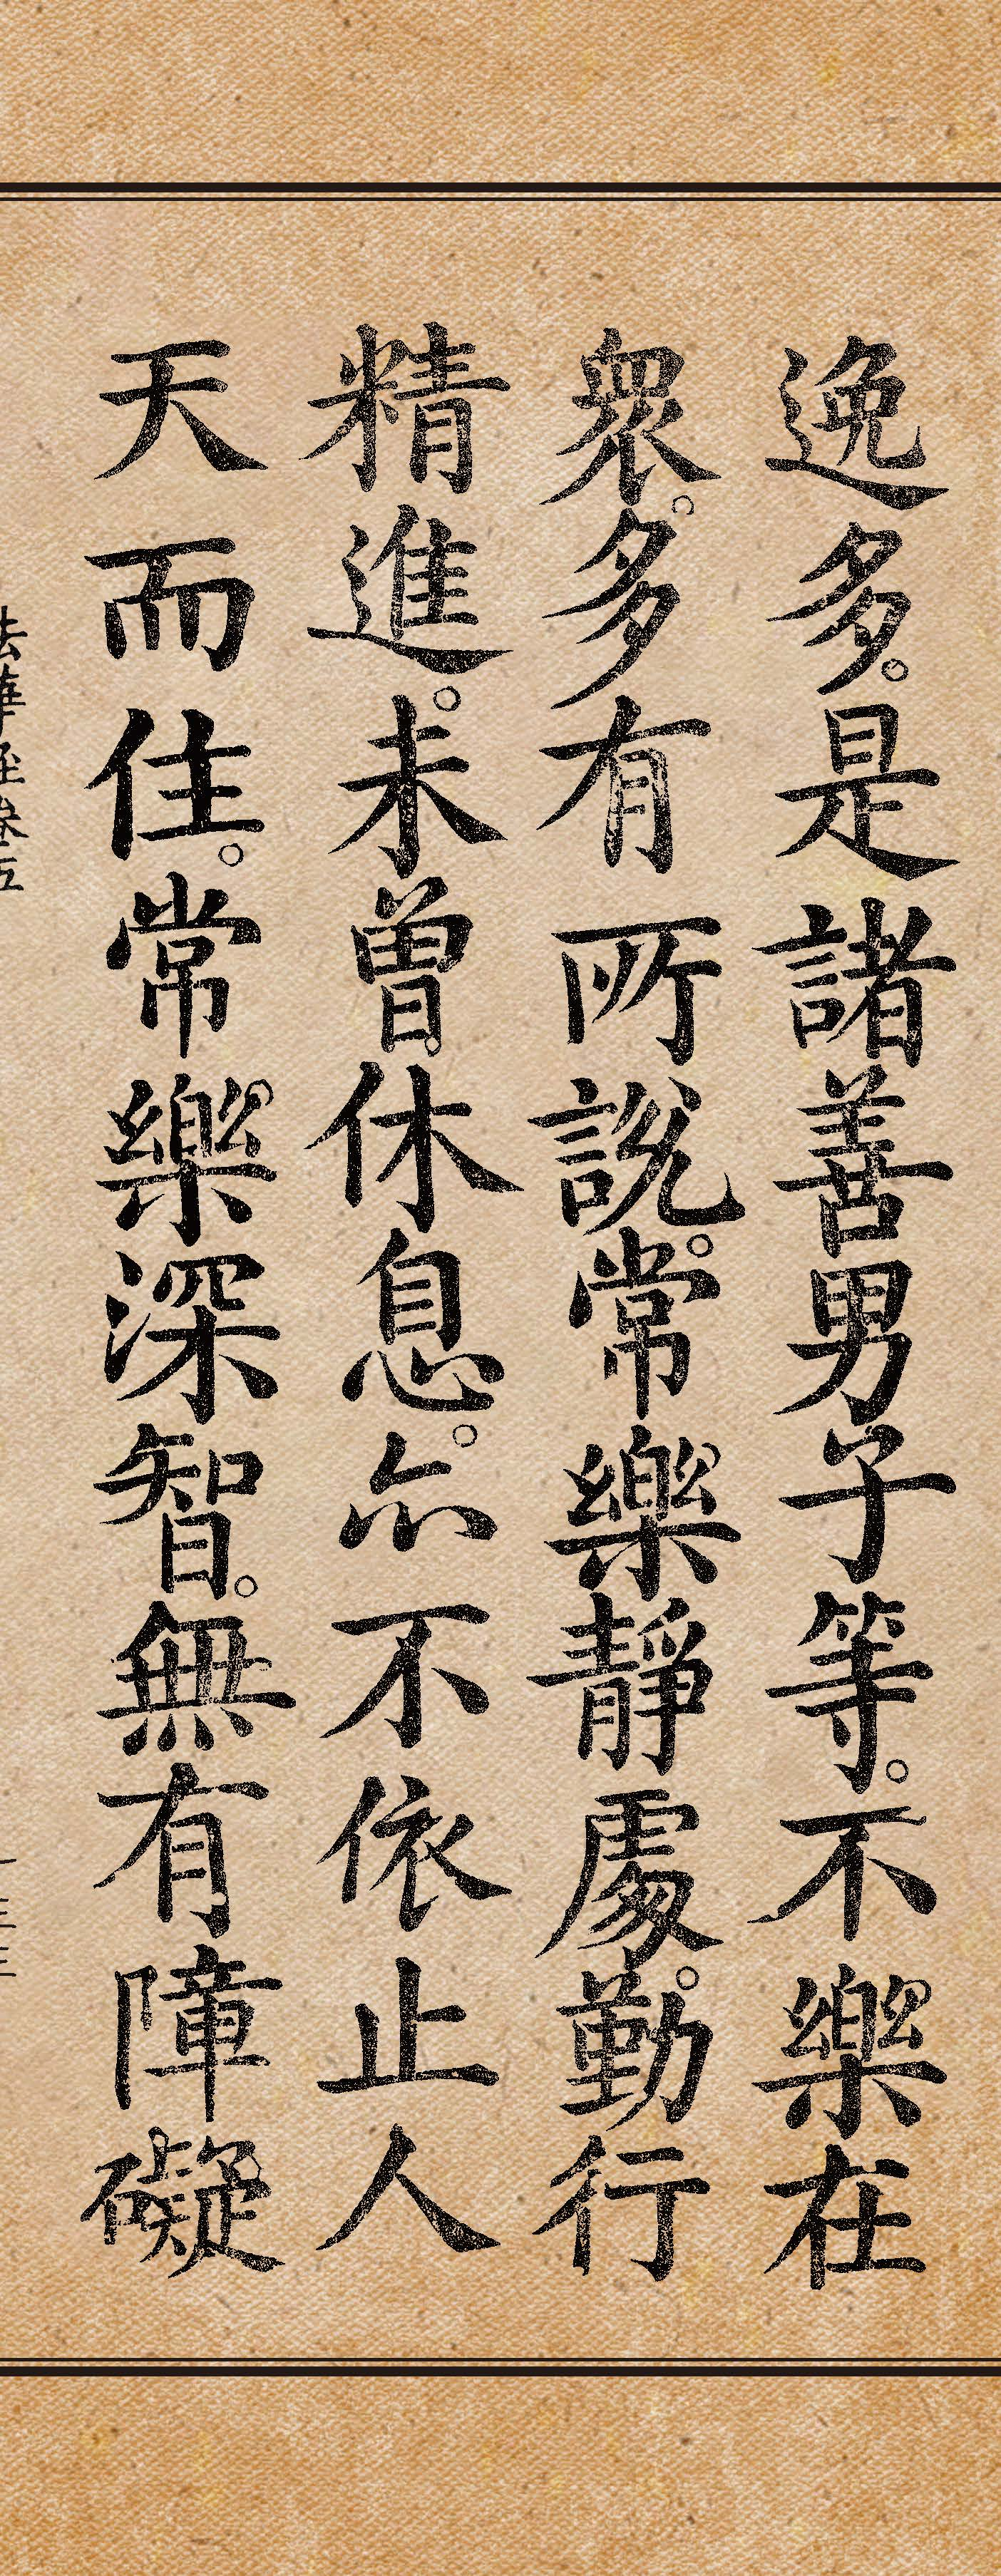 逸多。是諸善男子等。不樂在
衆。多有所說。常樂靜處。勤行
精進。未曾休息。亦不依止人
天而住。常樂深智。無有障礙
法華經卷五